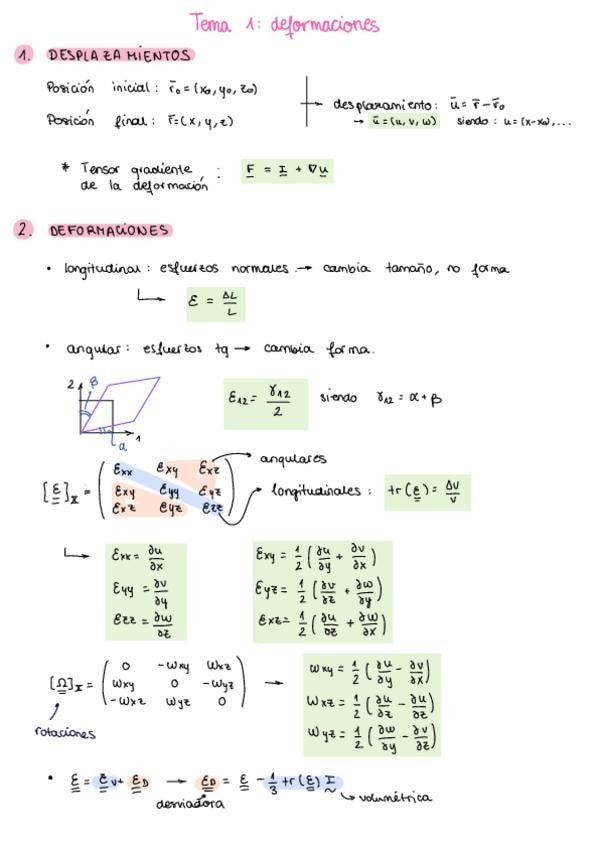 Tema 1: deformaciones
1. DESPLAZAMIENTOS
Posición inicial: r̄₀ = (x₀, y₀, z₀)
Posición final: r̄ = (x, y, z)
desplazamiento: ū = r̄ - r̄₀
→ ū = (u, v, w) siendo: u = (x-x₀), ...
* Tensor gradiente de la deformación : F = I + ∇u
2. DEFORMACIONES
• longitudinal: esfuerzos normales → cambia tamaño, no forma
ε = ΔL/L
• angular: esfuerzos tg → cambia forma.
2 β
1
α
ε₁₂ = γ₁₂/2 siendo γ₁₂ = α + β
[ε]ₓ = ( εxx εxy εxz
εxy εyy εyz
εxz εyz εzz )
angulares
longitudinales: tr(ε) = Δv/v
εxx = ∂u/∂x
εyy = ∂v/∂y
εzz = ∂w/∂z
εxy = 1/2 (∂u/∂y + ∂v/∂x)
εyz = 1/2 (∂v/∂z + ∂w/∂y)
εxz = 1/2 (∂u/∂z + ∂w/∂x)
[Ω]ₓ = ( 0 -ωxy ωxz
ωxy 0 -ωyz
-ωxz ωyz 0 ) →
rotaciones
ωxy = 1/2 (∂u/∂y - ∂v/∂x)
ωxz = 1/2 (∂u/∂z - ∂u/∂z)
ωyz = 1/2 (∂w/∂y - ∂v/∂z)
• ε = εv + εD → εD = ε - 1/3 tr(ε) I
desviadora
volumétrica